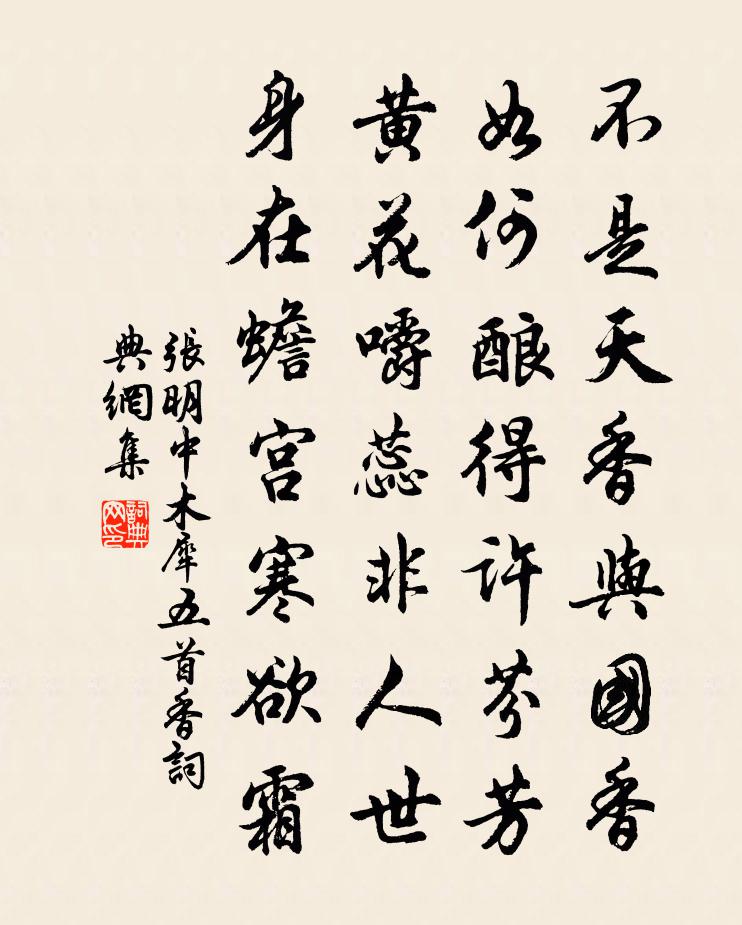 不是天香與國香
如何酿得许芬芳
黄花嚼蕊非人世
身在蟾宫寒欲霜
張明中木犀五首香詞
典網集
詞典
网印